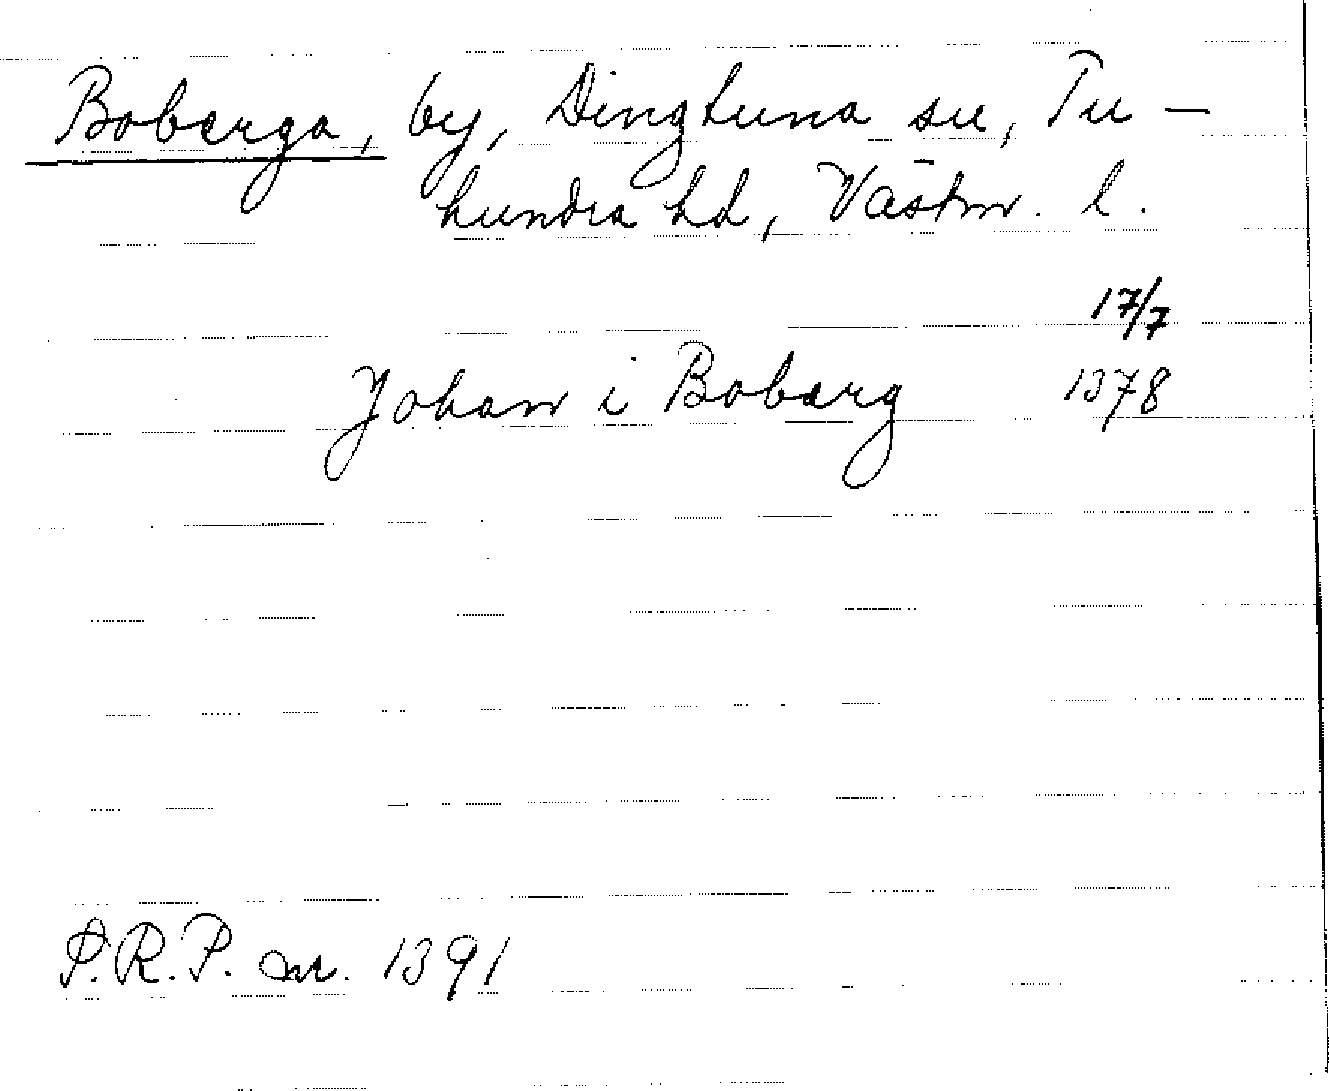 Boberga, by, Dingtuna sn, Tu-
hundra hd, Västm. l.
17/7
Johan i Boberg 1378
P.R.P. nr. 1391